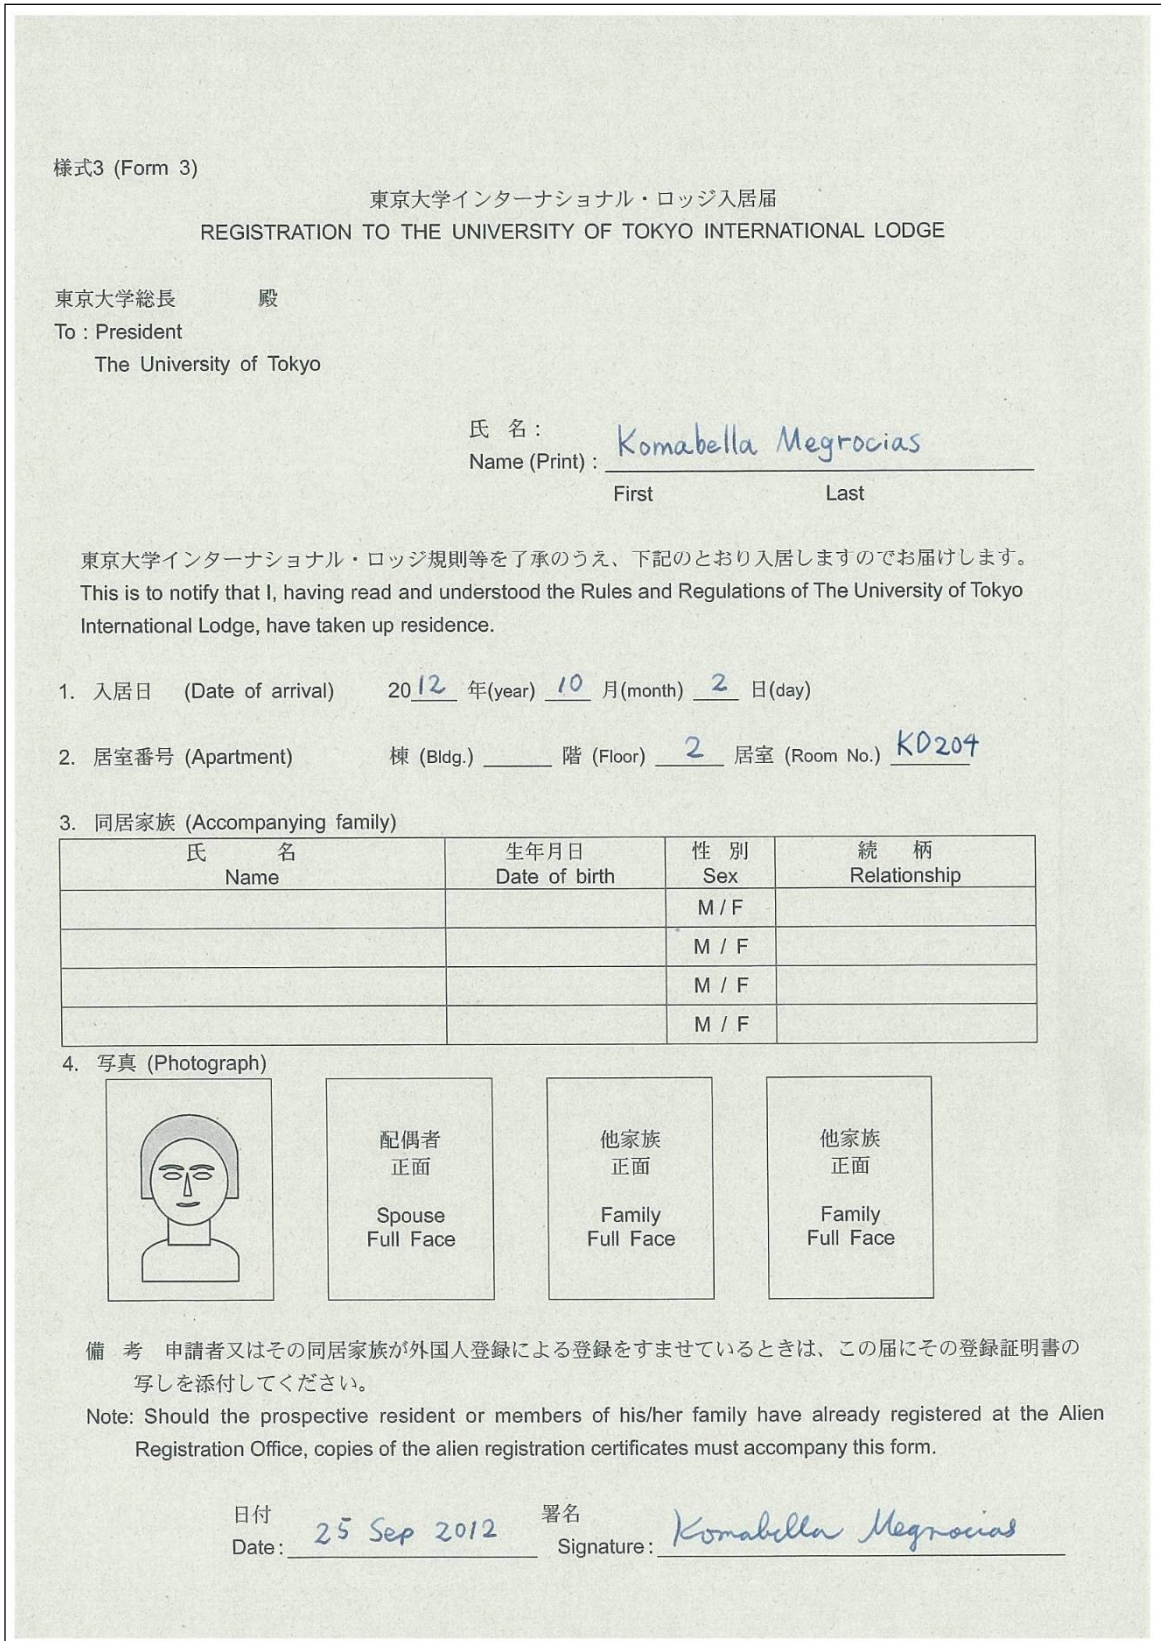 様式3 (Form 3)
東京大学インターナショナル・ロッジ入居届
REGISTRATION TO THE UNIVERSITY OF TOKYO INTERNATIONAL LODGE
東京大学総長 殿
To : President
The University of Tokyo
氏 名 :
Name (Print) : Komabella Megrocias
First Last
東京大学インターナショナル・ロッジ規則等を了承のうえ、下記のとおり入居しますのでお届けします。
This is to notify that I, having read and understood the Rules and Regulations of The University of Tokyo
International Lodge, have taken up residence.
1. 入居日 (Date of arrival) 2012 年(year) 10 月(month) 2 日(day)
2. 居室番号 (Apartment) 棟 (Bldg.) ______ 階 (Floor) 2 居室 (Room No.) KD204
3. 同居家族 (Accompanying family)
氏 名 生年月日 性 別 続 柄
Name Date of birth Sex Relationship
M / F
M / F
M / F
M / F
4. 写真 (Photograph)
配偶者 他家族 他家族
正面 正面 正面
Spouse Family Family
Full Face Full Face Full Face
備 考 申請者又はその同居家族が外国人登録による登録をすませているときは、この届にその登録証明書の
写しを添付してください。
Note: Should the prospective resident or members of his/her family have already registered at the Alien
Registration Office, copies of the alien registration certificates must accompany this form.
日付 署名
Date : 25 Sep 2012 Signature : Komabella Megrocias